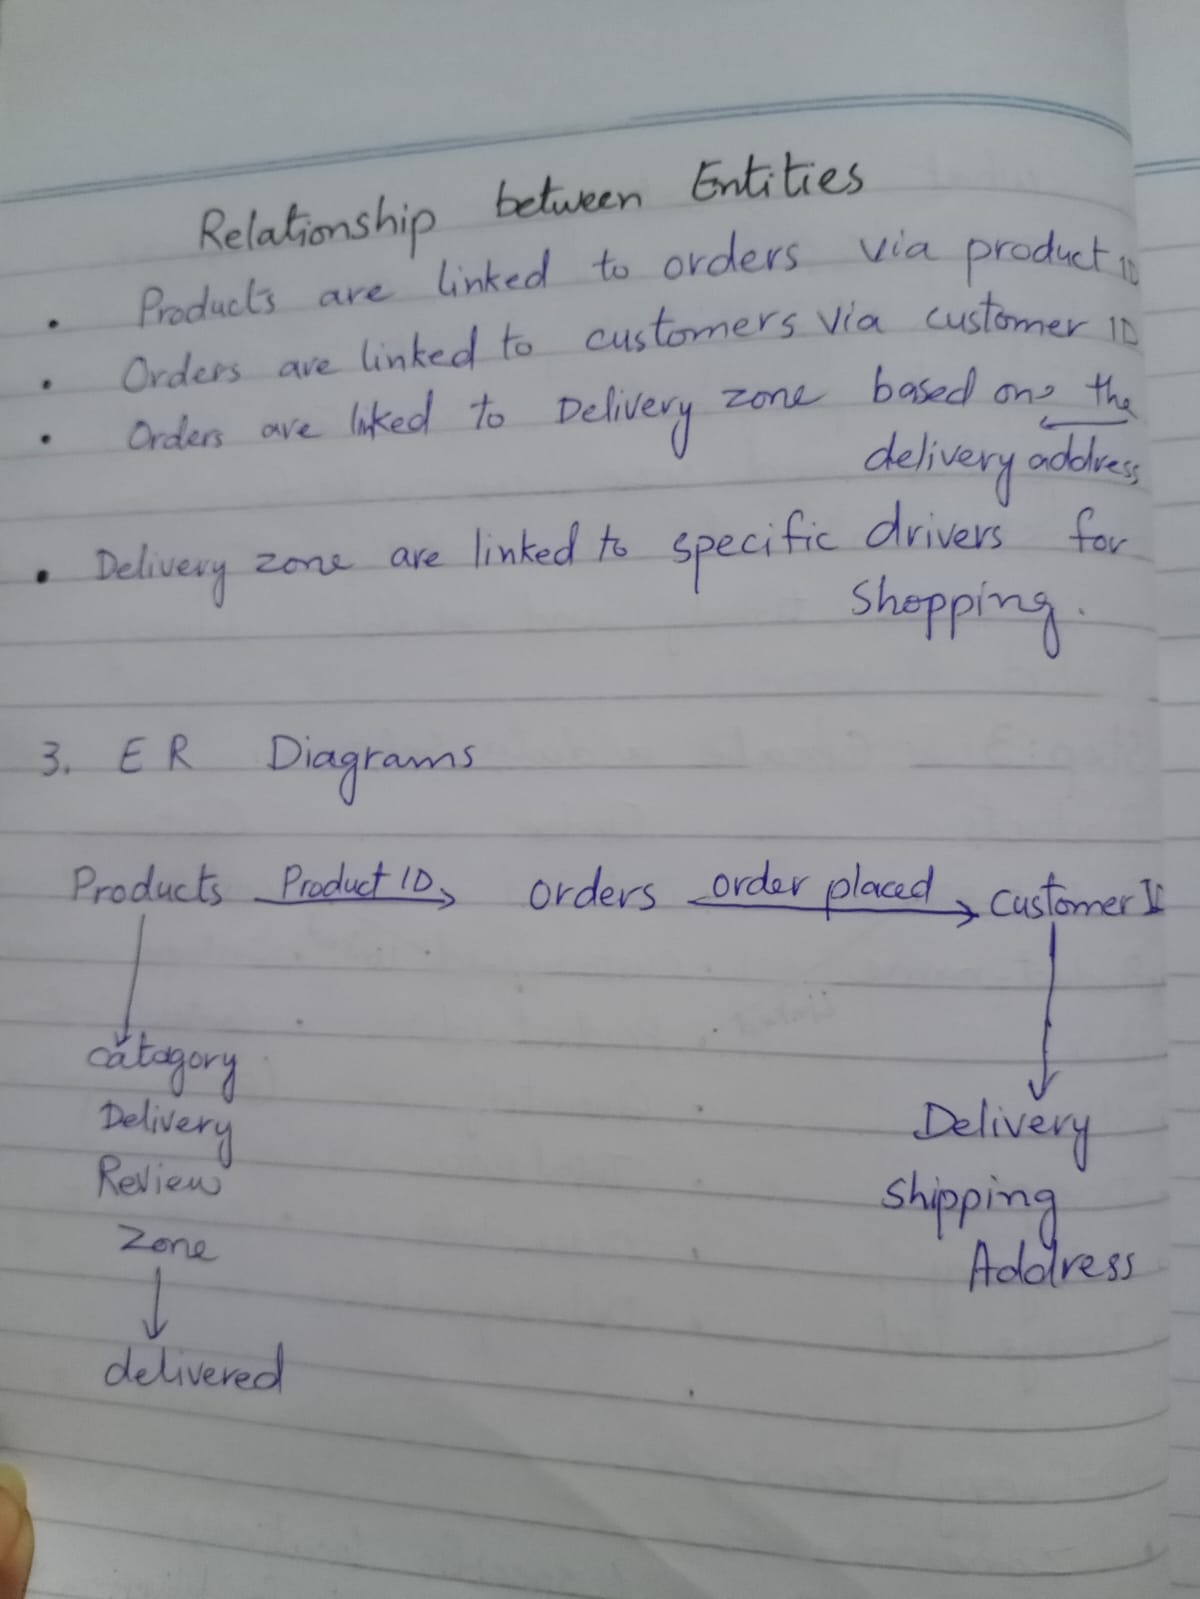 Relationship between Entities
• Products are linked to orders via product ID
• Orders are linked to customers via customer ID
• Orders are linked to Delivery zone based on the
delivery address
• Delivery zone are linked to specific drivers for
Shopping.
3. ER Diagrams
Products Product ID orders order placed customer
catagory
Delivery
Review
Zone
delivered
Delivery
Shipping
Address